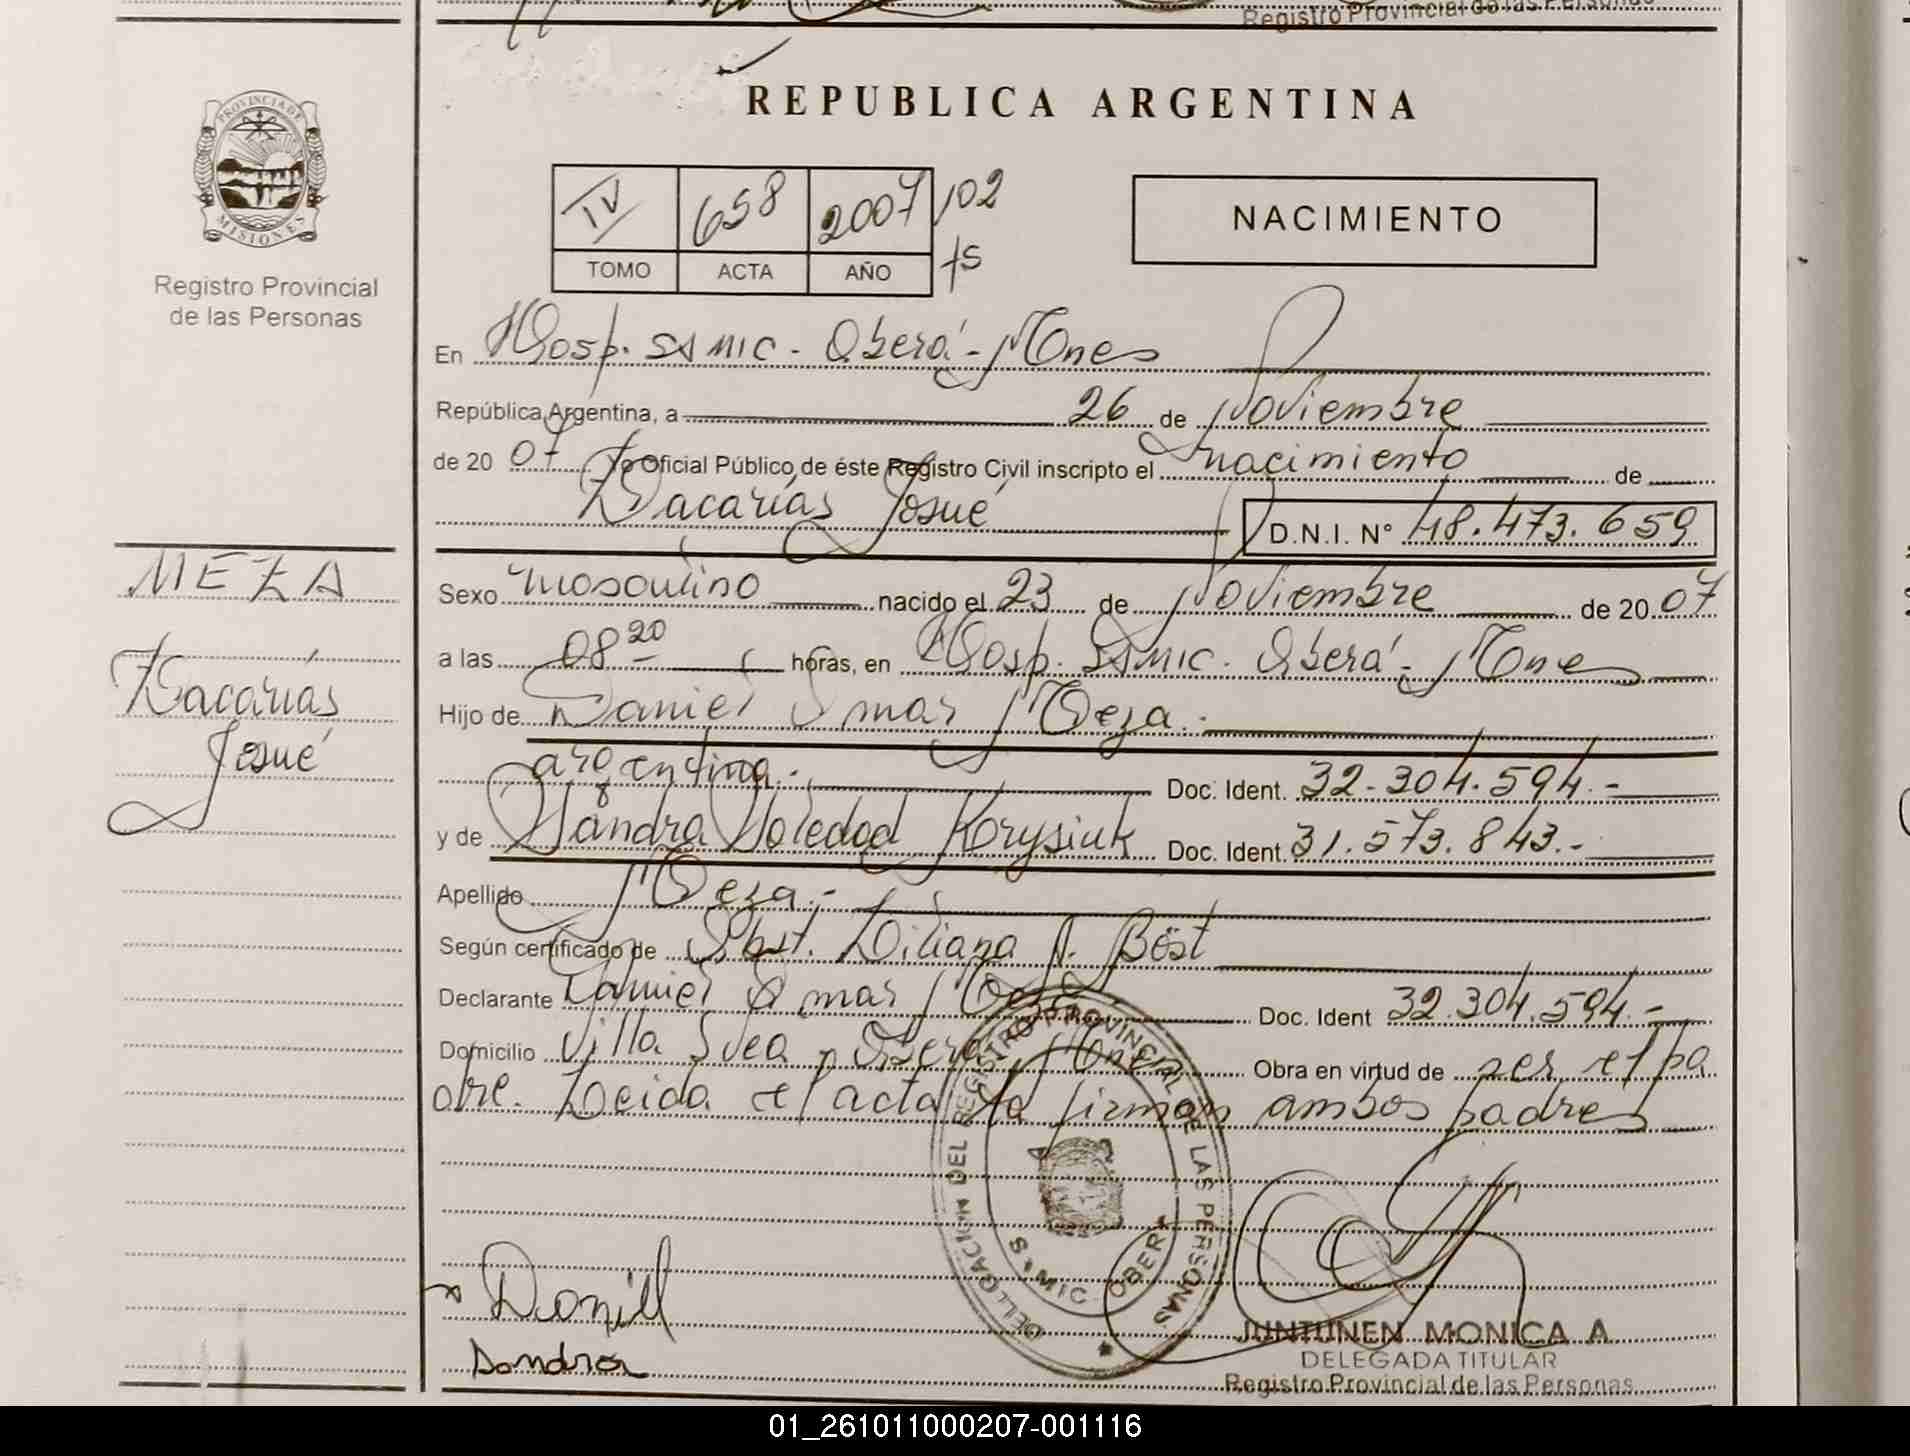 Registro Provincial de las Personas
PROVINCIA DE
MISIONES
Registro Provincial
de las Personas
REPUBLICA ARGENTINA
IV 658 2007 102
TOMO ACTA AÑO fs
NACIMIENTO
En Hosp. SAMIC - Oberá - Mnes
República Argentina, a 26 de Noviembre
de 20 07 Yo Oficial Público de éste Registro Civil inscripto el nacimiento de
Zacarías Josué D.N.I. N° 48.473.659
MEZA
Zacarías
Josué
Sexo masculino nacido el 23 de Noviembre de 20 07
a las 08 20 horas, en Hosp. SAMIC - Oberá - Mnes
Hijo de Daniel Omar Meza.-
argentina.- Doc. Ident. 32.304.594.-
y de Sandra Soledad Korysiuk Doc. Ident. 31.573.843.-
Apellido Meza.-
Según certificado de Obst. Liliana A. Böst
Declarante Daniel Omar Meza Doc. Ident 32.304.594.-
Domicilio Villa Svea - Oberá - Mnes Obra en virtud de ser el pa
dre. Leída el acta la firman ambos padres
DELEGACION DEL REGISTRO PROVINCIAL DE LAS PERSONAS
SAMIC OBERA
Daniel
Sandra
JUNTUNEN MONICA A
DELEGADA TITULAR
Registro Provincial de las Personas
01_261011000207-001116